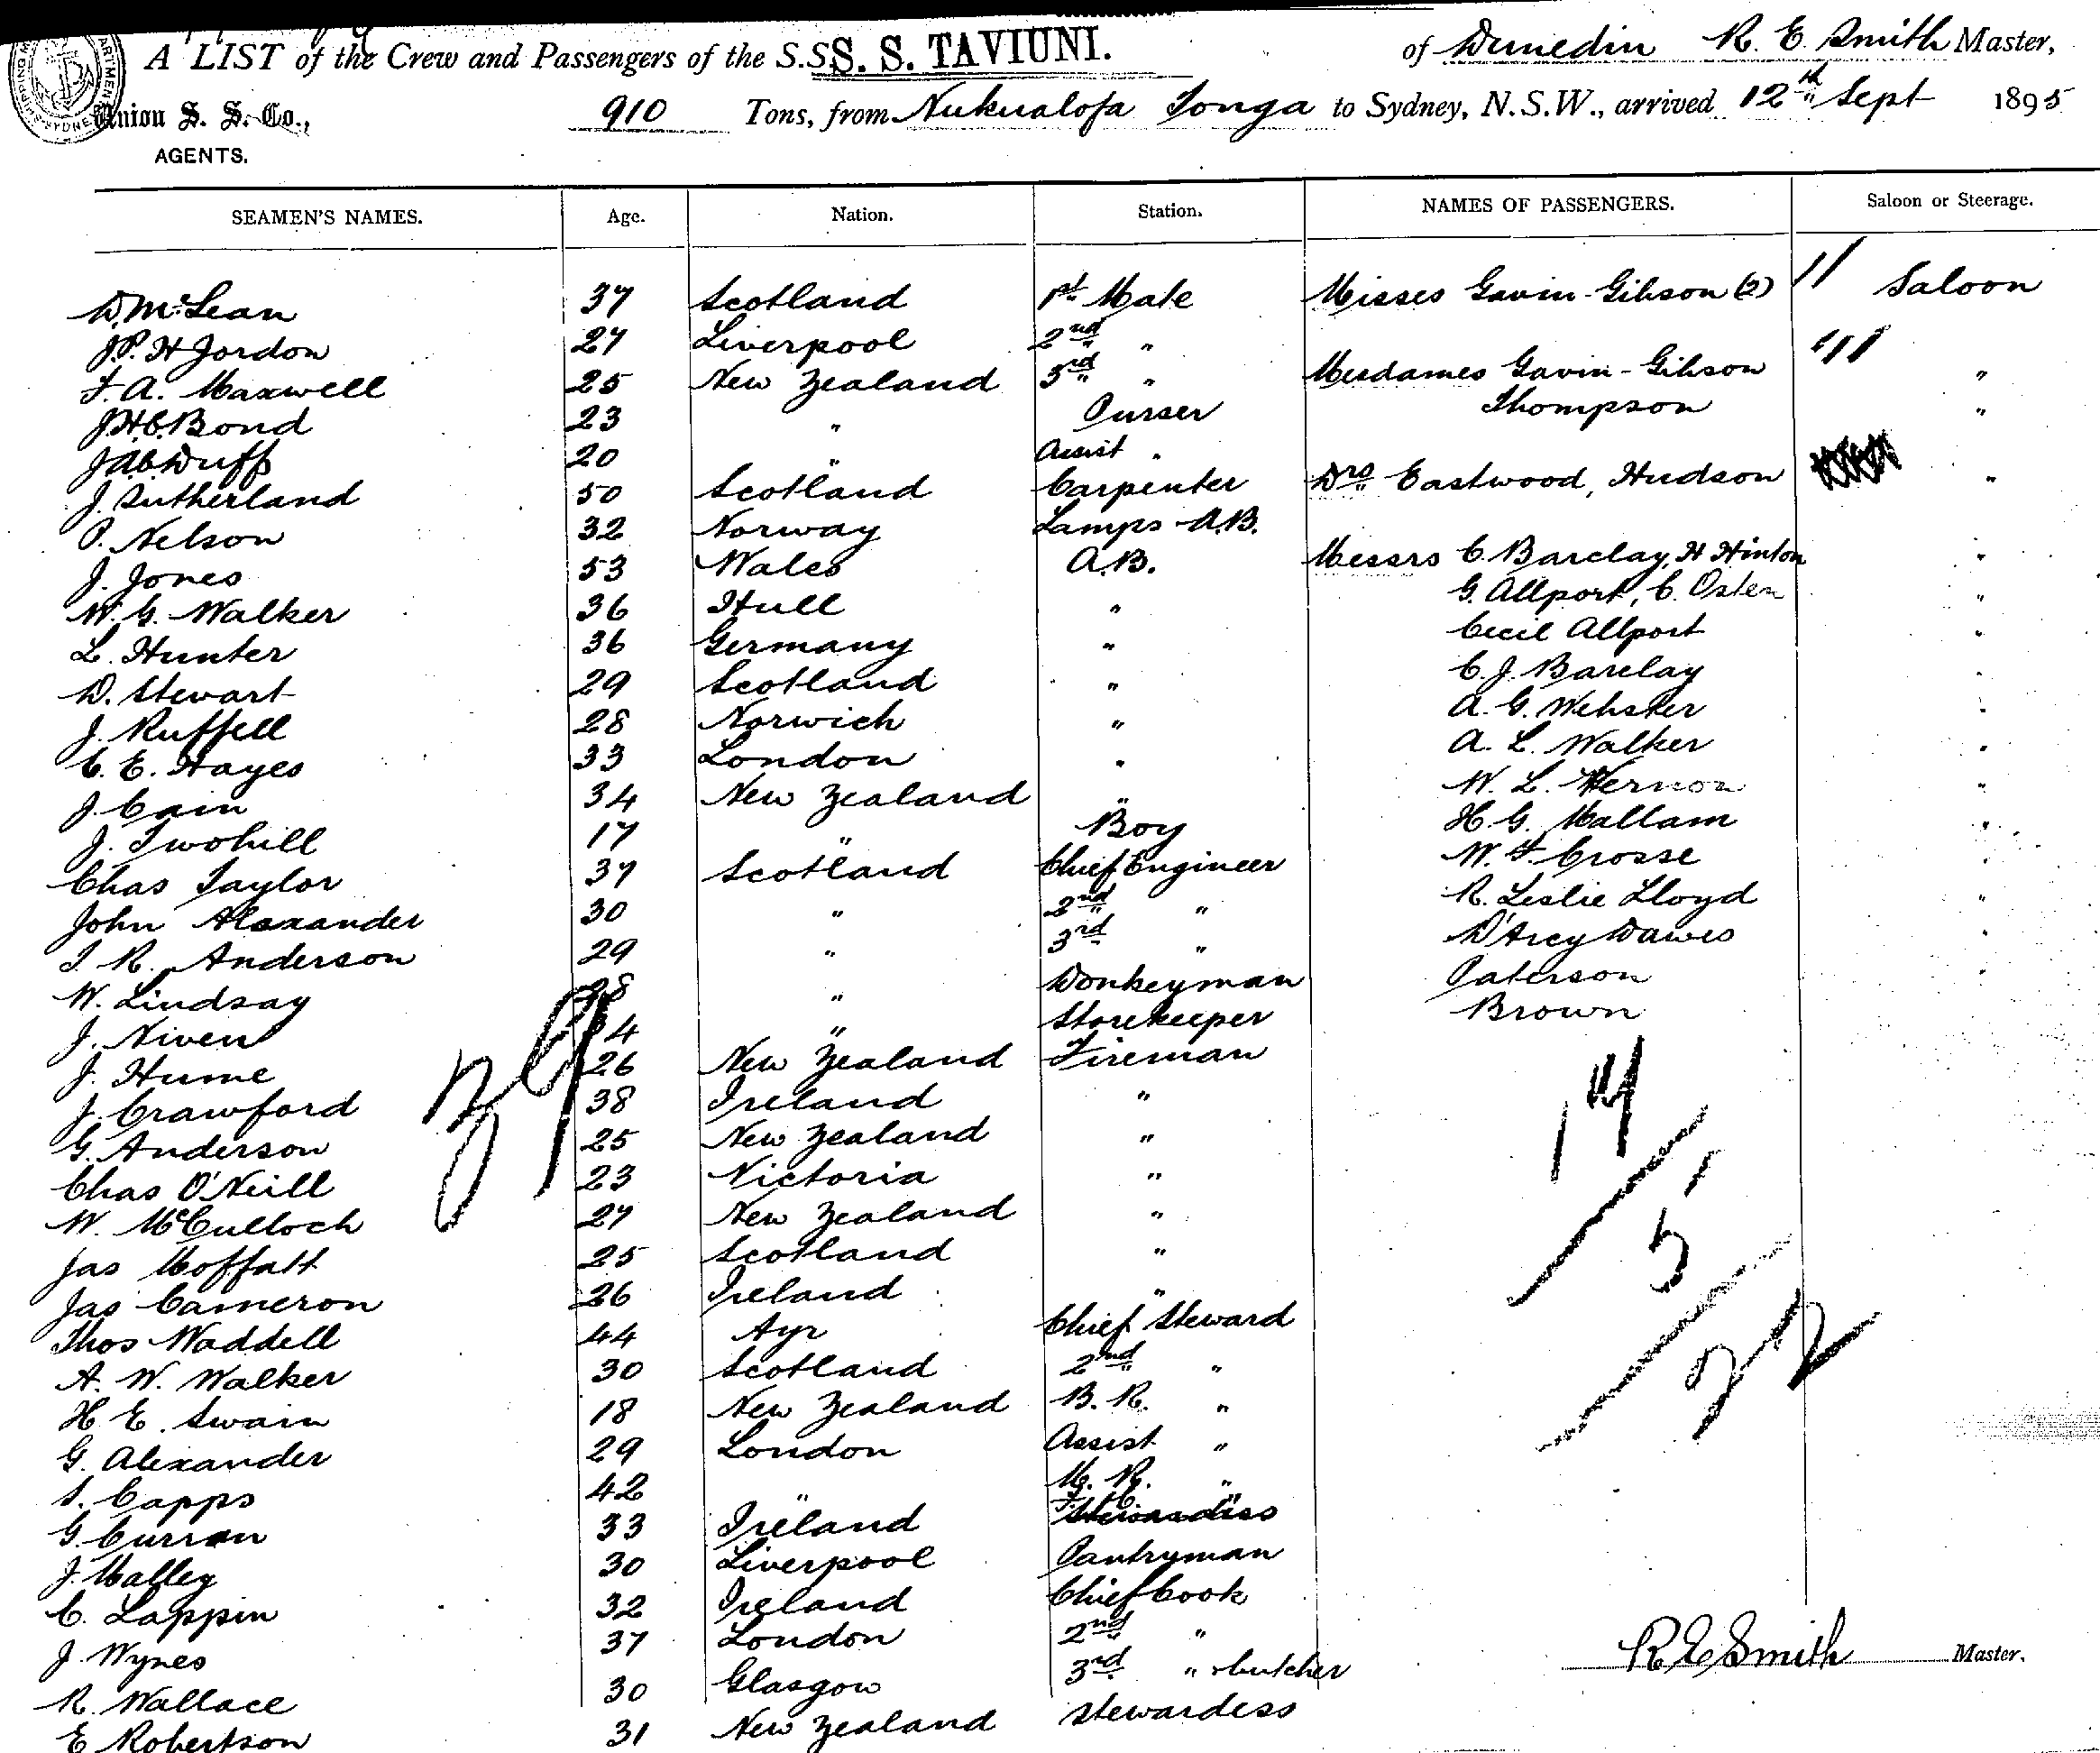 A LIST of the Crew and Passengers of the S.S. S. S. TAVIUNI. of Dunedin R. E. Smith Master,
Union S. S. Co., 910 Tons, from Nukualofa Tonga to Sydney, N.S.W., arrived 12th Sept 1895
AGENTS.
SEAMEN'S NAMES. Age. Nation. Station. NAMES OF PASSENGERS. Saloon or Steerage.
D. McLean 37 Scotland 1st Mate Misses Gavin-Gibson (2) 11 Saloon
J.P. H Jordon 27 Liverpool 2nd "
F. A. Maxwell 25 New Zealand 3rd " Mesdames Gavin-Gibson "
J.H.C. Bond 23 " Purser Thompson "
J.A.C. Duff 20 " Assist "
J. Sutherland 50 Scotland Carpenter Drs Eastwood, Hudson "
P. Nelson 32 Norway Lamps - A.B.
J. Jones 53 Wales A.B. Messrs C. Barclay, H Hinton "
W. G. Walker 36 Hull " G. Allport, C. Osten "
L. Hunter 36 Germany " Cecil Allport "
D. Stewart 29 Scotland " C. J. Barclay "
J. Ruffell 28 Norwich " A. G. Webster "
C. E. Hayes 33 London " A. L. Walker "
J. Cain 34 New Zealand " W. L. Vernon "
J. Twohill 17 " Boy H. G. Mallam "
Chas Taylor 37 Scotland Chief Engineer W. F. Crosse "
John Alexander 30 " 2nd " R. Leslie Lloyd "
J. R. Anderson 29 " 3rd " D'Arcy Dawes "
W. Lindsay 28 " Donkeyman Paterson "
J. Niven 4 " Storekeeper Brown
J. Hume 26 New Zealand Fireman
J. Crawford 38 Ireland " 14
G. Anderson 25 New Zealand "
Chas O'Neill 23 Victoria "
W. McCulloch 27 New Zealand " 5
Jas Moffatt 25 Scotland "
Jas Cameron 26 Ireland "
Thos Waddell 44 Ayr Chief Steward
A. W. Walker 30 Scotland 2nd " 22
H. E. Swain 18 New Zealand B. R. "
G. Alexander 29 London Assist "
S. Capps 42 " M. R. "
G. Curran 33 Ireland F. C. "
J. Malley 30 Liverpool Pantryman
C. Lappin 32 Ireland Chief Cook
J. Wynes 37 London 2nd "
R. Wallace 30 Glasgow 3rd " & butcher R E Smith Master.
E Robertson 31 New Zealand Stewardess
39